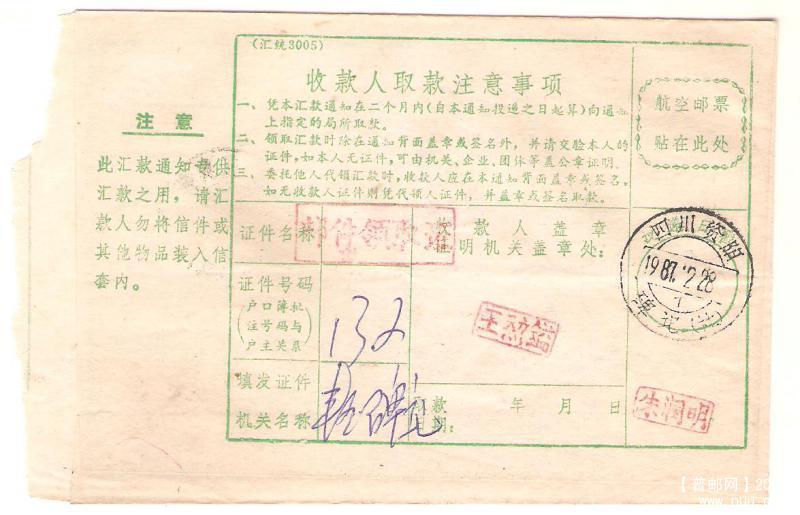 (汇统3005)
收款人取款注意事项
一、凭本汇款通知在二个月内(自本通知投递之日起算)向通知
上指定的局所取款。
二、领取汇款时除在通知背面盖章或签名外，并请交验本人的
证件，如本人无证件，可由机关、企业、团体等盖公章证明。
三、委托他人代领汇款时，收款人应在本通知背面盖章或签名。
如无收款人证件则凭代领人证件，并盖章或签名取款。
航空邮票
贴在此处
注意
此汇款通知专供
汇款之用，请汇
款人勿将信件或
其他物品装入信
套内。
证件名称
邮件领取
收款人盖章
证明机关盖章处：
四川资阳
1987.12.28
证件号码
(户口簿批
注号码与
户主关系)
132
王
填发证件
机关名称
取款
日期：
年 月 日
朱润明
【普邮网】20